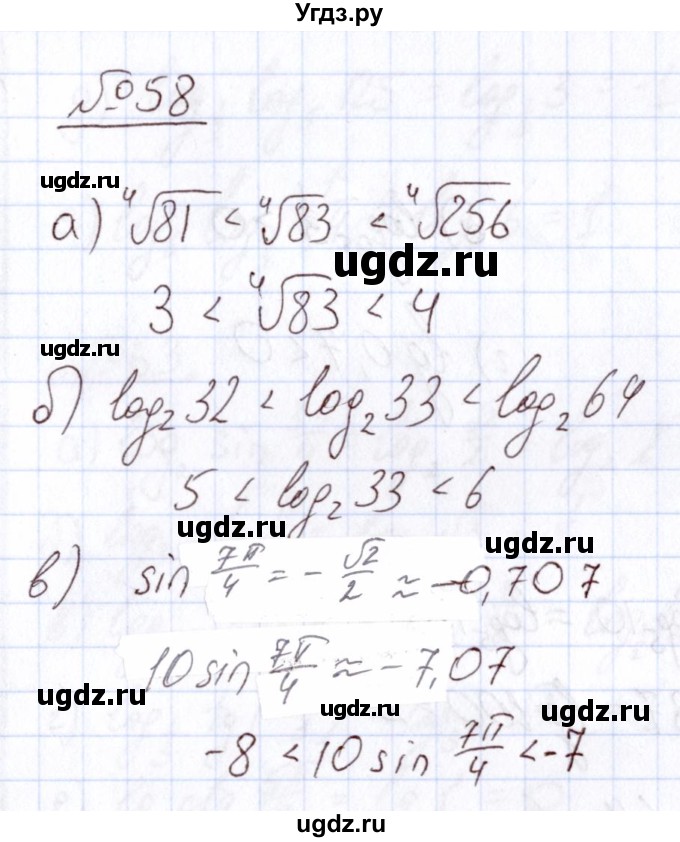 Угдз.ру
№58
ugdz.ru
а) ⁴√81 < ⁴√83 < ⁴√256
ugdz.ru
3 < ⁴√83 < 4
ugdz.ru
б) log₂32 < log₂33 < log₂64
5 < log₂33 < 6
ugdz.ru
ugdz.ru
в) sin 7π/4 = - √2/2 ≈ -0,707
ugdz.ru
10 sin 7π/4 ≈ -7,07
ugdz.ru
ugdz.ru
ugdz.ru
-8 < 10 sin 7π/4 < -7
ugdz.ru